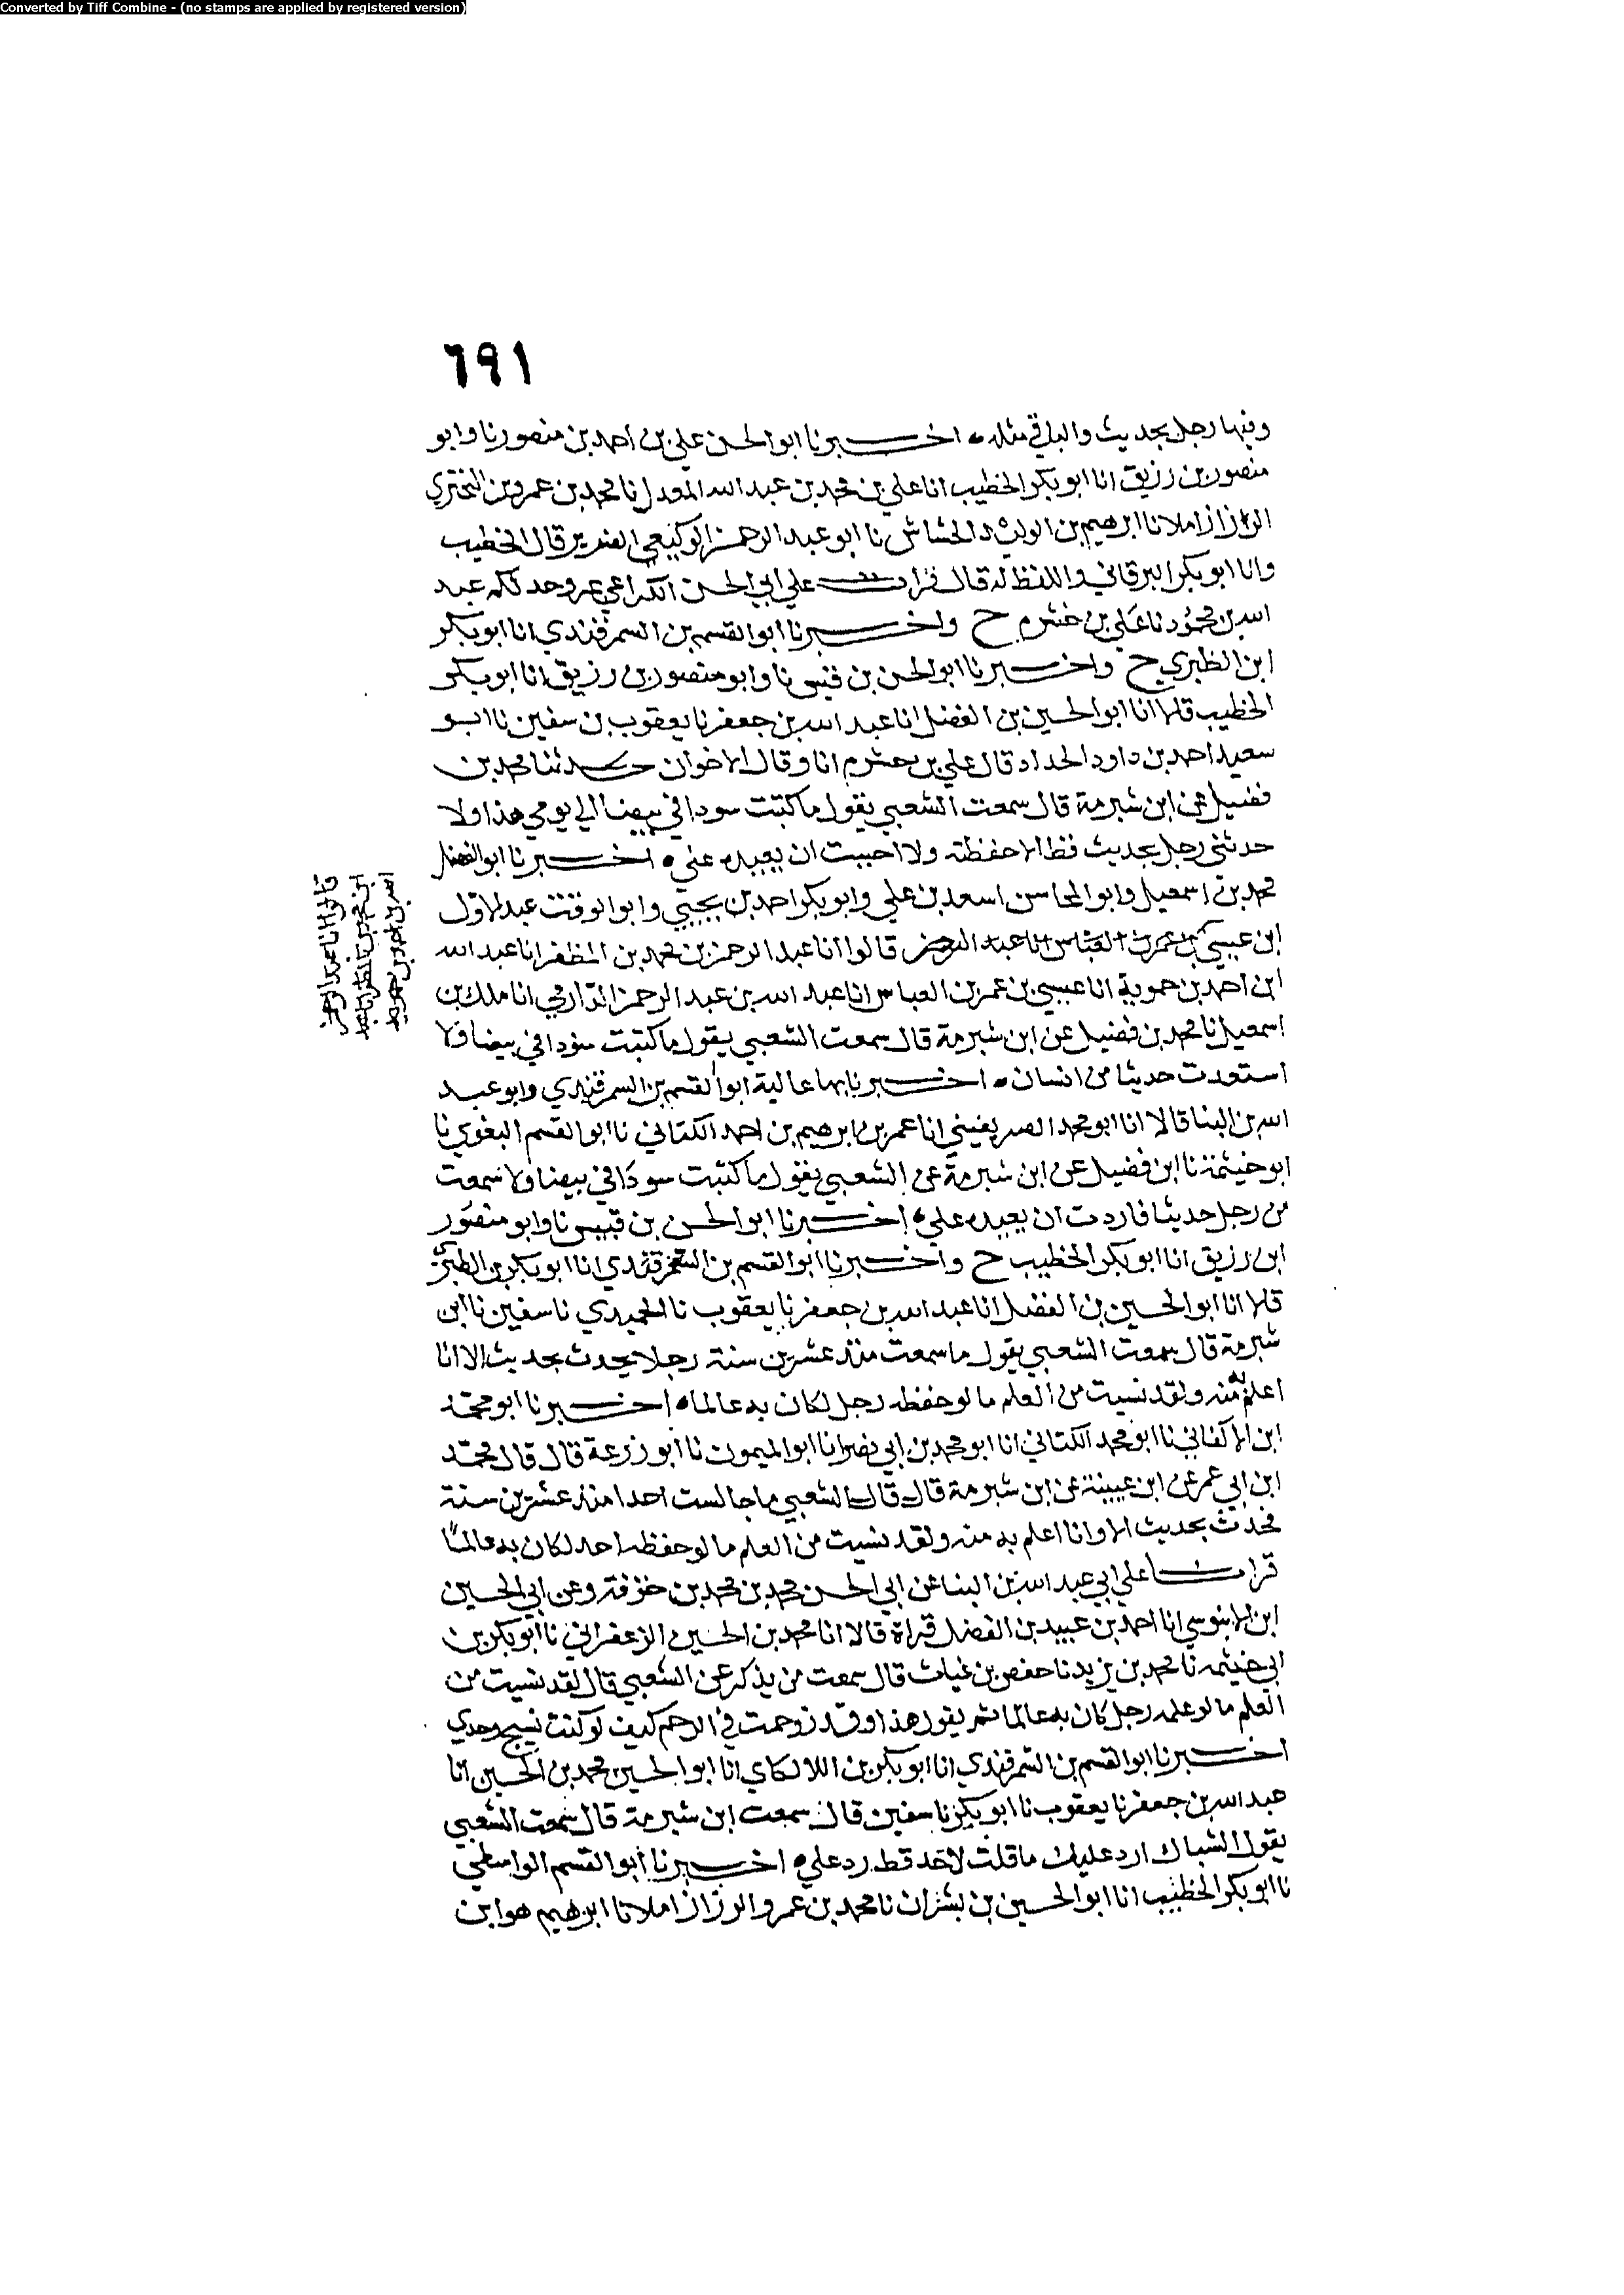 Converted by Tiff Combine - (no stamps are applied by registered version)
٦٩١
وفيها رجل بحديث والباقي مثله • اخبرنا ابو الحسن علي بن احمد بن منصور نا وابو
منصور بن رزيق انا ابو بكر الخطيب انا علي بن محمد بن عبد الله المعدل نا محمد بن عمرو بن البختري
الرزاز املا نا ابرهيم بن الوليد الحشاش نا ابو عبد الرحمن الوكيعي الضرير قال الخطيب
وانا ابو بكر البرقاني واللفظ له قال قرات علي ابي الحسن الكراعي بمرو حدثكم عبد
الله بن محمود نا علي بن خشرم ح واخبرنا ابو القسم بن السمرقندي انا ابو بكر
ابن الطبري ح واخبرنا ابو الحسن بن قبيس نا وابو منصور بن رزيق انا ابو بكر
الخطيب قالا انا ابو الحسين بن الفضل انا عبد الله بن جعفر نا يعقوب بن سفين نا ابو
سعيد احمد بن داود الحداد قال علي بن خشرم انا وقال الاخوان حدثنا محمد بن
فضيل عن ابن شبرمة قال سمعت الشعبي يقول ما كتبت سودا في بيضا الي يومي هذا ولا
حدثني رجل بحديث قط الا حفظته ولا احببت ان يعيده علي • اخبرنا ابو الفضل
محمد بن اسمعيل وابو المحاسن اسعد بن علي وابو بكر احمد بن يحيي وابو الوقت عبد الاول
ابن عيسي بن عمر بن العباس انا عبد الرحمن قالوا انا عبد الرحمن بن محمد بن المظفر انا عبد الله
ابن احمد بن حموية انا عيسي بن عمر بن العباس انا عبد الله بن عبد الرحمن الدارمي انا ملك بن
اسمعيل نا محمد بن فضيل عن ابن شبرمة قال سمعت الشعبي يقول ما كتبت سودا في بيضا ولا
استعدت حديثا من انسان • اخبرنا بها عالية ابو القسم بن السمرقندي وابو عبد
الله بن البنا قالا انا ابو محمد الصريفيني انا عمر بن ابرهيم بن احمد الكتاني نا ابو القسم البغوي نا
ابو خيثمة نا ابن فضيل عن ابن شبرمة عن الشعبي يقول ما كتبت سودا في بيضا ولا سمعت
من رجل حديثا فاردت ان يعيده علي • اخبرنا ابو الحسن بن قبيس نا وابو منصور
ابن رزيق انا ابو بكر الخطيب ح واخبرنا ابو القسم بن السمرقندي انا ابو بكر بن الطبري
قالا انا ابو الحسين بن الفضل انا عبد الله بن جعفر نا يعقوب نا الحميدي نا سفين نا ابن
شبرمة قال سمعت الشعبي يقول ما سمعت منذ عشرين سنة رجلا يحدث بحديث الا انا
اعلم به منه ولقد نسيت من العلم ما لو حفظه رجل لكان به عالما • اخبرنا ابو محمد
ابن الاكفاني نا ابو محمد الكتاني انا ابو محمد بن ابي نصر انا ابو الميمون نا ابو زرعة قال قال محمد
ابن ابي عمر عن ابن عيينة عن ابن شبرمة قال قال الشعبي ما جالست احدا منذ عشرين سنة
فحدث بحديث الا وانا اعلم به منه ولقد نسيت من العلم ما لو حفظه احد لكان به عالما
قرات علي ابي عبد الله بن البنا عن ابي الحسن محمد بن محمد بن خزفة وعن ابي الحسين
ابن الابنوسي انا احمد بن عبيد بن الفضل قراة قالا انا محمد بن الحسين الزعفراني نا ابو بكر بن
ابي خيثمه نا محمد بن يزيد نا حفص بن غياث قال سمعت من يذكر عن الشعبي قال لقد نسيت من
العلم ما لو علمه رجل كان به عالما ثم يقول هذا وقد زوحمت في الرحم كيف لو كنت نسيج وحدي
اخبرنا ابو القسم بن السمرقندي انا ابو بكر بن اللالكاي انا ابو الحسين محمد بن الحسين انا
عبد الله بن جعفر نا يعقوب نا ابو بكر نا سفين قال سمعت ابن شبرمة قال سمعت الشعبي
يقول الشباك ارد عليك ما قلت لاحد قط رد علي • اخبرنا ابو القسم الواسطي
نا ابو بكر الخطيب انا ابو الحسين بن بشران نا محمد بن عمرو الرزاز املا نا ابرهيم هو ابن
قالوا انا عبد الرحمن